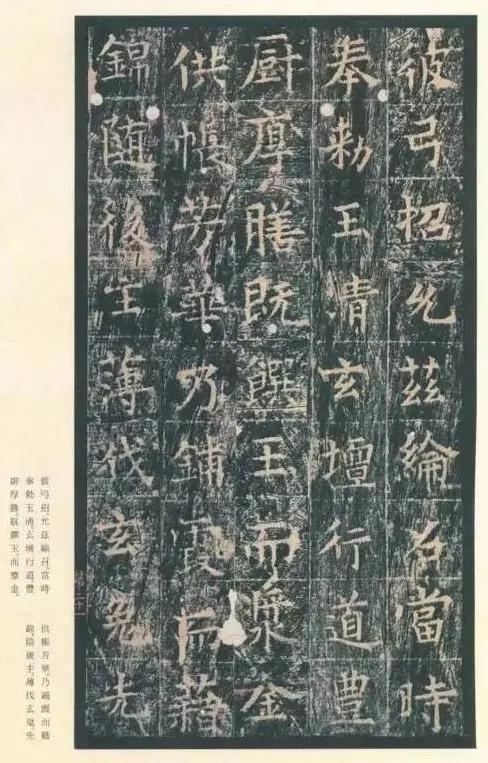 彼弓招允茲綸召當時
奉勅玉清玄壇行道豊
厨厚膳既饌玉而漿金
供帳芳華乃鋪霞而藉
錦隨後主薄伐玄兔先
彼弓招允茲綸召當時
奉勅玉清玄壇行道豊
廚厚膳既饌玉而漿金
供帳芳華乃鋪霞而藉
錦隨後主薄伐玄兔先